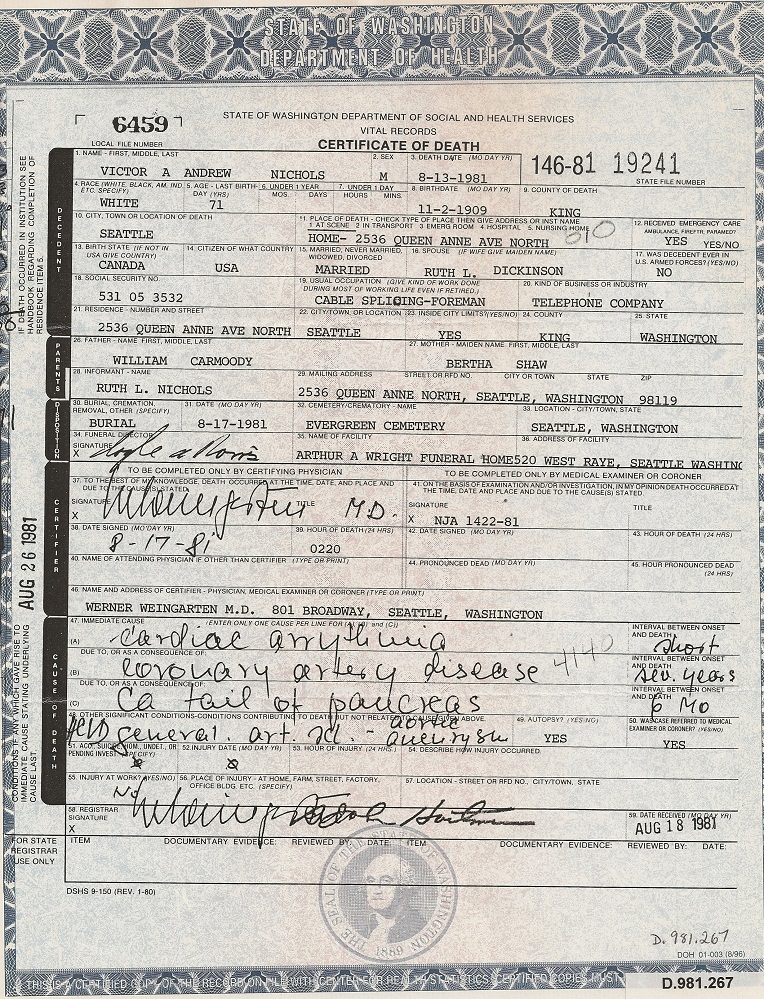 STATE OF WASHINGTON
DEPARTMENT OF HEALTH
6459
LOCAL FILE NUMBER
STATE OF WASHINGTON DEPARTMENT OF SOCIAL AND HEALTH SERVICES
VITAL RECORDS
CERTIFICATE OF DEATH
146-81 19241
STATE FILE NUMBER
IF DEATH OCCURRED IN INSTITUTION SEE HANDBOOK REGARDING COMPLETION OF RESIDENCE ITEM S.
DECEDENT
1. NAME - FIRST, MIDDLE, LAST
VICTOR A ANDREW NICHOLS
2. SEX
M
3. DEATH DATE (MO DAY YR)
8-13-1981
4. RACE (WHITE, BLACK, AM. IND. ETC. SPECIFY)
WHITE
5. AGE - LAST BIRTH-DAY (YRS)
71
6. UNDER 1 YEAR
MOS. DAYS
7. UNDER 1 DAY
HOURS MINS.
8. BIRTHDATE (MO DAY YR)
11-2-1909
9. COUNTY OF DEATH
KING
10. CITY, TOWN OR LOCATION OF DEATH
SEATTLE
11. PLACE OF DEATH - CHECK TYPE OF PLACE THEN GIVE ADDRESS OR INST NAME
1 AT SCENE 2 IN TRANSPORT 3 EMERG ROOM 4 HOSPITAL 5 NURSING HOME
HOME- 2536 QUEEN ANNE AVE NORTH 010
12. RECEIVED EMERGENCY CARE
AMBULANCE, FIREFTR, PARAMED?
YES YES/NO
13. BIRTH STATE (IF NOT IN USA GIVE COUNTRY)
CANADA
14. CITIZEN OF WHAT COUNTRY
USA
15. MARRIED, NEVER MARRIED, WIDOWED, DIVORCED
MARRIED
16. SPOUSE (IF WIFE GIVE MAIDEN NAME)
RUTH L. DICKINSON
17. WAS DECEDENT EVER IN U.S. ARMED FORCES? (YES/NO)
NO
18. SOCIAL SECURITY NO.
531 05 3532
19. USUAL OCCUPATION (GIVE KIND OF WORK DONE DURING MOST OF WORKING LIFE EVEN IF RETIRED.)
CABLE SPLICING-FOREMAN
20. KIND OF BUSINESS OR INDUSTRY
TELEPHONE COMPANY
21. RESIDENCE - NUMBER AND STREET
2536 QUEEN ANNE AVE NORTH
22. CITY/TOWN, OR LOCATION
SEATTLE
23. INSIDE CITY LIMITS? (YES/NO)
YES
24. COUNTY
KING
25. STATE
WASHINGTON
PARENTS
26. FATHER - NAME FIRST, MIDDLE, LAST
WILLIAM CARMOODY
27. MOTHER - MAIDEN NAME FIRST, MIDDLE, LAST
BERTHA SHAW
28. INFORMANT - NAME
RUTH L. NICHOLS
29. MAILING ADDRESS STREET OR RFD NO. CITY OR TOWN STATE ZIP
2536 QUEEN ANNE NORTH, SEATTLE, WASHINGTON 98119
DISPOSITION
30. BURIAL, CREMATION, REMOVAL, OTHER (SPECIFY)
BURIAL
31. DATE (MO DAY YR)
8-17-1981
32. CEMETERY/CREMATORY - NAME
EVERGREEN CEMETERY
33. LOCATION - CITY/TOWN, STATE
SEATTLE, WASHINGTON
34. FUNERAL DIRECTOR
SIGNATURE
X
35. NAME OF FACILITY
ARTHUR A WRIGHT FUNERAL HOME
36. ADDRESS OF FACILITY
520 WEST RAYE, SEATTLE WASHINC
CERTIFIER
TO BE COMPLETED ONLY BY CERTIFYING PHYSICIAN
37. TO THE BEST OF MY KNOWLEDGE, DEATH OCCURRED AT THE TIME, DATE, AND PLACE AND DUE TO THE CAUSE(S) STATED.
SIGNATURE TITLE
X M.D.
38. DATE SIGNED (MO DAY YR)
8-17-81
39. HOUR OF DEATH (24 HRS)
0220
40. NAME OF ATTENDING PHYSICIAN IF OTHER THAN CERTIFIER (TYPE OR PRINT)
TO BE COMPLETED ONLY BY MEDICAL EXAMINER OR CORONER
41. ON THE BASIS OF EXAMINATION AND/OR INVESTIGATION, IN MY OPINION DEATH OCCURRED AT THE TIME, DATE AND PLACE AND DUE TO THE CAUSE(S) STATED.
SIGNATURE TITLE
X NJA 1422-81
42. DATE SIGNED (MO DAY YR)
43. HOUR OF DEATH (24 HRS)
44. PRONOUNCED DEAD (MO DAY YR)
45. HOUR PRONOUNCED DEAD (24 HRS)
46. NAME AND ADDRESS OF CERTIFIER - PHYSICIAN, MEDICAL EXAMINER OR CORONER (TYPE OR PRINT)
WERNER WEINGARTEN M.D. 801 BROADWAY, SEATTLE, WASHINGTON
AUG 26 1981
CONDITIONS IF ANY WHICH GAVE RISE TO IMMEDIATE CAUSE STATING UNDERLYING CAUSE LAST
CAUSE OF DEATH
47. IMMEDIATE CAUSE (ENTER ONLY ONE CAUSE PER LINE FOR (A), (B) and (C))
(A) cardiac arrythmia
INTERVAL BETWEEN ONSET AND DEATH
short
DUE TO, OR AS A CONSEQUENCE OF:
(B) coronary artery disease 4140
INTERVAL BETWEEN ONSET AND DEATH
sev. years
DUE TO, OR AS A CONSEQUENCE OF:
(C) Ca tail of pancreas
INTERVAL BETWEEN ONSET AND DEATH
6 Mo
48. OTHER SIGNIFICANT CONDITIONS-CONDITIONS CONTRIBUTING TO DEATH BUT NOT RELATED TO CAUSE GIVEN ABOVE.
general. art. scl. - aorta aneurysm
49. AUTOPSY? (YES/NO)
YES
50. WAS CASE REFERRED TO MEDICAL EXAMINER OR CORONER? (YES/NO)
YES
51. ACC, SUICIDE, HOM., UNDET., OR PENDING INVEST.
52. INJURY DATE (MO DAY YR)
53. HOUR OF INJURY (24 HRS.)
54. DESCRIBE HOW INJURY OCCURRED.
55. INJURY AT WORK? (YES/NO)
No
56. PLACE OF INJURY - AT HOME, FARM, STREET, FACTORY, OFFICE BLDG. ETC. (SPECIFY)
57. LOCATION - STREET OR RFD NO., CITY/TOWN, STATE
58. REGISTRAR
SIGNATURE
X
59. DATE RECEIVED (MO DAY YR)
AUG 18 1981
FOR STATE REGISTRAR USE ONLY
ITEM DOCUMENTARY EVIDENCE: REVIEWED BY: DATE: ITEM DOCUMENTARY EVIDENCE: REVIEWED BY: DATE:
DSHS 9-150 (REV. 1-80)
THE SEAL OF THE STATE OF WASHINGTON
1889
D.981.267
DOH 01-003 (8/96)
THIS IS A CERTIFIED COPY OF THE RECORD ON FILE WITH CENTER FOR HEALTH STATISTICS CERTIFIED COPIES MUST
D.981.267